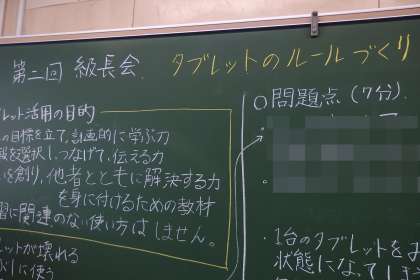 第二回 級長会. タブレットのルールづくり
レット活用の目的
の目標を立て,計画的に学ぶ力
を選択し,つなげて,伝える力
を創り,他者とともに解決する力
を身に付けるための教材
に関連のない使い方はしません。
レットが壊れる
に使う
○問題点(7分).
・1台のタブレットを
状態になってい